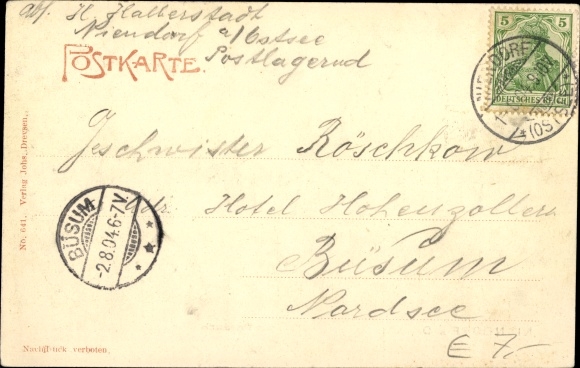 abs. H. Halberstadt
Niendorf a/Ostsee
Postlagernd
POSTKARTE.
5 5
DEUTSCHES REICH
NIENDORF
(OSTSEE)
Geschwister Röschkow
Hotel Hohenzollern
Büsum
Nordsee
BÜSUM
-2.8.04.6-7V
No. 641. Verlag Johs. Dreesen.
Nachdruck verboten.
€ 7,-